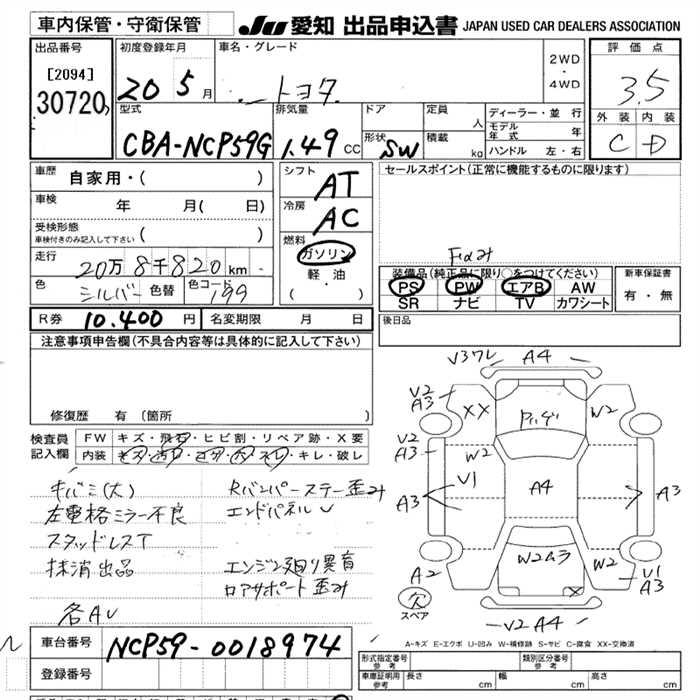 車内保管・守衛保管
JU 愛知 出品申込書 JAPAN USED CAR DEALERS ASSOCIATION
出品番号
[2094]
30720
初度登録年月
20 5月
車名・グレード
トヨタ
2WD
・
4WD
評価点
3.5
外装 内装
C D
型式
CBA-NCP59G
排気量
1.49 CC
ドア
形状
SW
定員
人
積載
kg
ディーラー・並行
モデル年式 年
ハンドル 左・右
車歴
自家用・( )
車検
年 月( 日)
受検形態
車検付きのみ記入して下さい
( )
走行
20万8千820km
色
シルバー
色替
色コード
199
シフト
AT
冷房
AC
燃料
ガソリン
軽油
( ・ )
セールスポイント(正常に機能するものに限ります)
装備品(純正品に限り○をつけてください)
PS PW エアB AW
SR ナビ TV カワシート
新車保証書
有・無
R券 10.400円
名変期限 月 日
後日品
注意事項申告欄(不具合内容等は具体的に記入して下さい)
修復歴 有(箇所 )
検査員記入欄
FW キズ・飛石・ヒビ割・リペア跡・X要
内装 キズ・汚れ・コゲ・穴・スレ・キレ・破レ
キバミ(大)
左電格ミラー不良
スタッドレスT
抹消出品
各AU
Rバンパーステー歪み
エンドパネルU
エンジン廻り異音
ロアサポート歪み
V3ワレ A4
V2
A3
XX
W2
V2
A3
W2
V1
A4
A3
A3
A2
W2ムラ
W2
V1
A3
X
欠
スペア
V2 A4
A-キズ E-エクボ U-凹み W-補修跡 S-サビ C-腐食 XX-交換済
車台番号
NCP59-0018974
登録番号
形式指定番号
参考
類別区分番号
参考
車庫証明用
参考
長さ cm
幅 cm
高さ cm